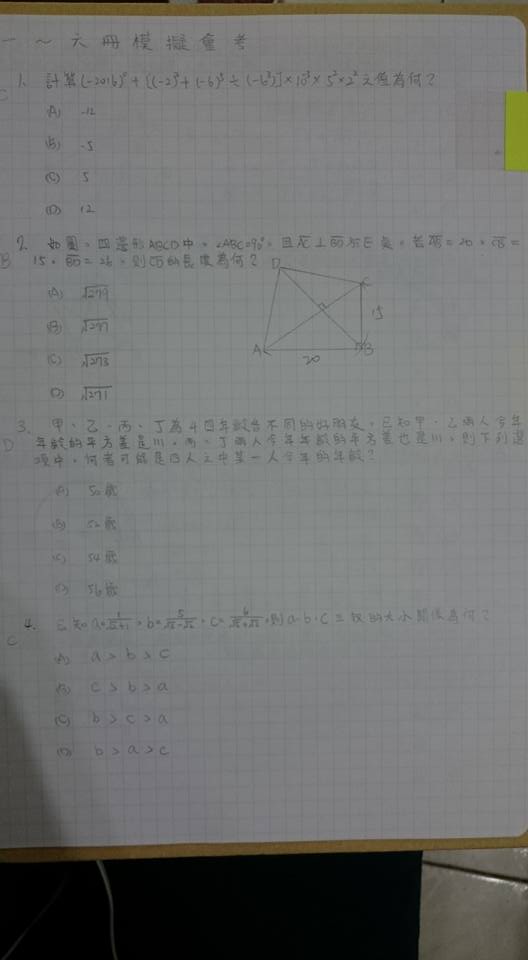 一～六冊模擬會考
1. 計算(-2016)⁰+[(-2)³+(-6)³÷(-6³)]×10⁻³×5²×2²之值為何？
C
(A) -12
(B) -5
(C) 5
(D) 12
2. 如圖，四邊形ABCD中，∠ABC=90°，且AC⊥BD於E點，若AB=20，CB=
B 15，BD=26，則CD的長度為何？
(A) √279
(B) √277
(C) √273
(D) √271
D
C
15
A
B
20
3. 甲、乙、丙、丁為4四年齡各不同的好朋友，已知甲、乙兩人今年
D 年齡的平方差是111，丙、丁兩人今年年齡的平方差也是111，則下列選
項中，何者可能是四人之中某一人今年的年齡？
(A) 50歲
(B) 52歲
(C) 54歲
(D) 56歲
4. 已知 則a、b、c三數的大小關係為何？
C
(A) a > b > c
(B) c > b > a
(C) b > c > a
(D) b > a > c